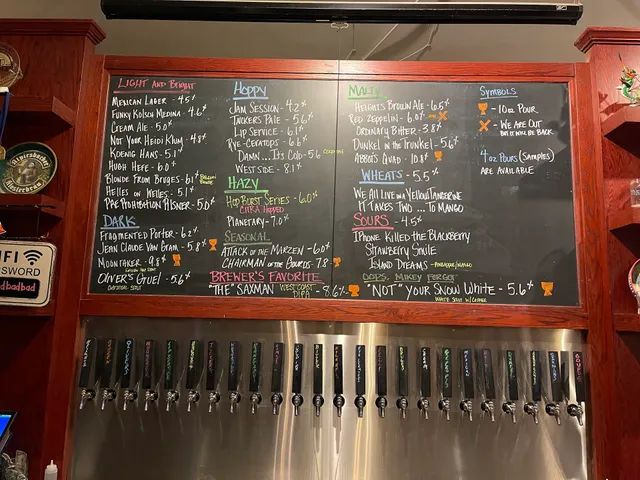 LIGHT AND BRIGHT
MEXICAN LAGER - 4.5%
FUNKY KOLSCH MEDINA - 4.6%
CREAM ALE - 5.0%
NOT YOUR HEIDI KLUM - 4.8%
KOENIG HANS - 5.1%
HUGH HEFE - 6.0%
BLONDE FROM BRUGES - 6.1%
BELGIAN BLONDE
HELLES ON WELLES - 5.1%
PRE PROHIBITION PILSNER - 5.0%
DARK
FRAGMENTED PORTER - 6.2%
JEAN CLAUDE VAN GRAM - 5.8%
MOONRAKER - 9.8%
OLIVER'S GRUEL - 5.6%
OATMEAL STOUT
HOPPY
JAM SESSION - 4.2%
TUCKERS PALE - 5.6%
LIP SERVICE - 6.1%
RYE-CERATOPS - 6.6%
DAMN... ITS COLD - 5.6
WEST SIDE - 8.1%
HAZY
HOP BURST SERIES - 6.0%
PLANETARY - 7.0%
SEASONAL
ATTACK OF THE MARZEN - 6.0%
CHAIRMAN OF THE GOURDS - 7.8
BREWER'S FAVORITE
"THE" SAXMAN WEST COAST DIPA - 8.6%
MALTY
HEIGHTS BROWN ALE - 6.5%
RED ZEPPELIN - 6.0%
ORDINARY BITTER - 3.8%
DUNKEL IN THE TRUNKEL - 5.6%
ABBOTS QUAD - 10.8%
WHEATS - 5.5%
WE ALL LIVE IN A YELLOW TANGERINE
IT TAKES TWO ... TO MANGO
SOURS - 4.5%
IPHONE KILLED THE BLACKBERRY
STRAWBERRY SMILE
ISLAND DREAMS - PINEAPPLE/MANGO
OOPS, MIKEY FORGOT
"NOT" YOUR SNOW WHITE - 5.6%
WHITE STOUT W/ COFFEE
SYMBOLS
- 10 OZ POUR
- WE ARE OUT
BUT IT WILL BE BACK
4 OZ POURS (SAMPLES)
ARE AVAILABLE
IFI
SSWORD
badbad